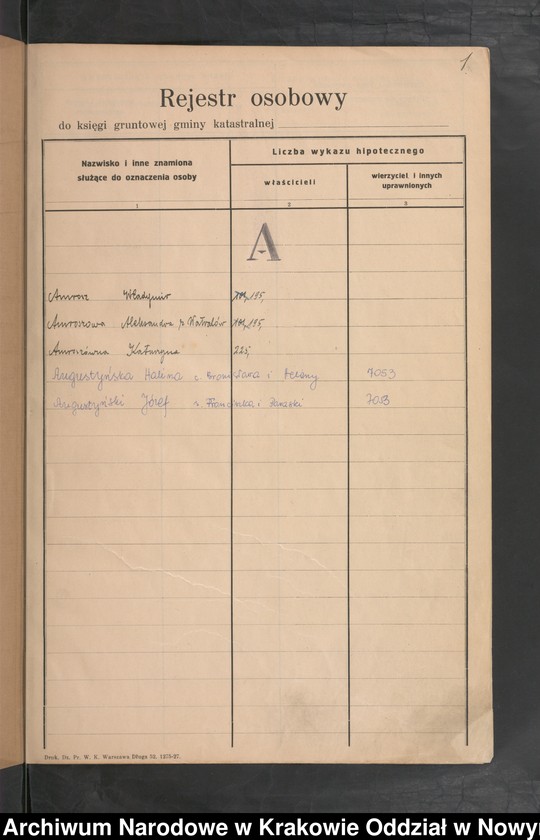 1
Rejestr osobowy
do księgi gruntowej gminy katastralnej
Nazwisko i inne znamiona
służące do oznaczenia osoby
Liczba wykazu hipotecznego
właścicieli
wierzycieli i innych
uprawnionych
1 2 3
A
Amrosz Władymir 195,
Amroszowa Aleksandra 195,
Amroszówna Katarzyna 225,
Augustyńska Halina c. Bronisława i Heleny 7053
Augustyński Józef s. Franciszka i 7053
Druk. Dz. Pr. W. K. Warszawa Długa 52. 1375-27.
Archiwum Narodowe w Krakowie Oddział w Nowy